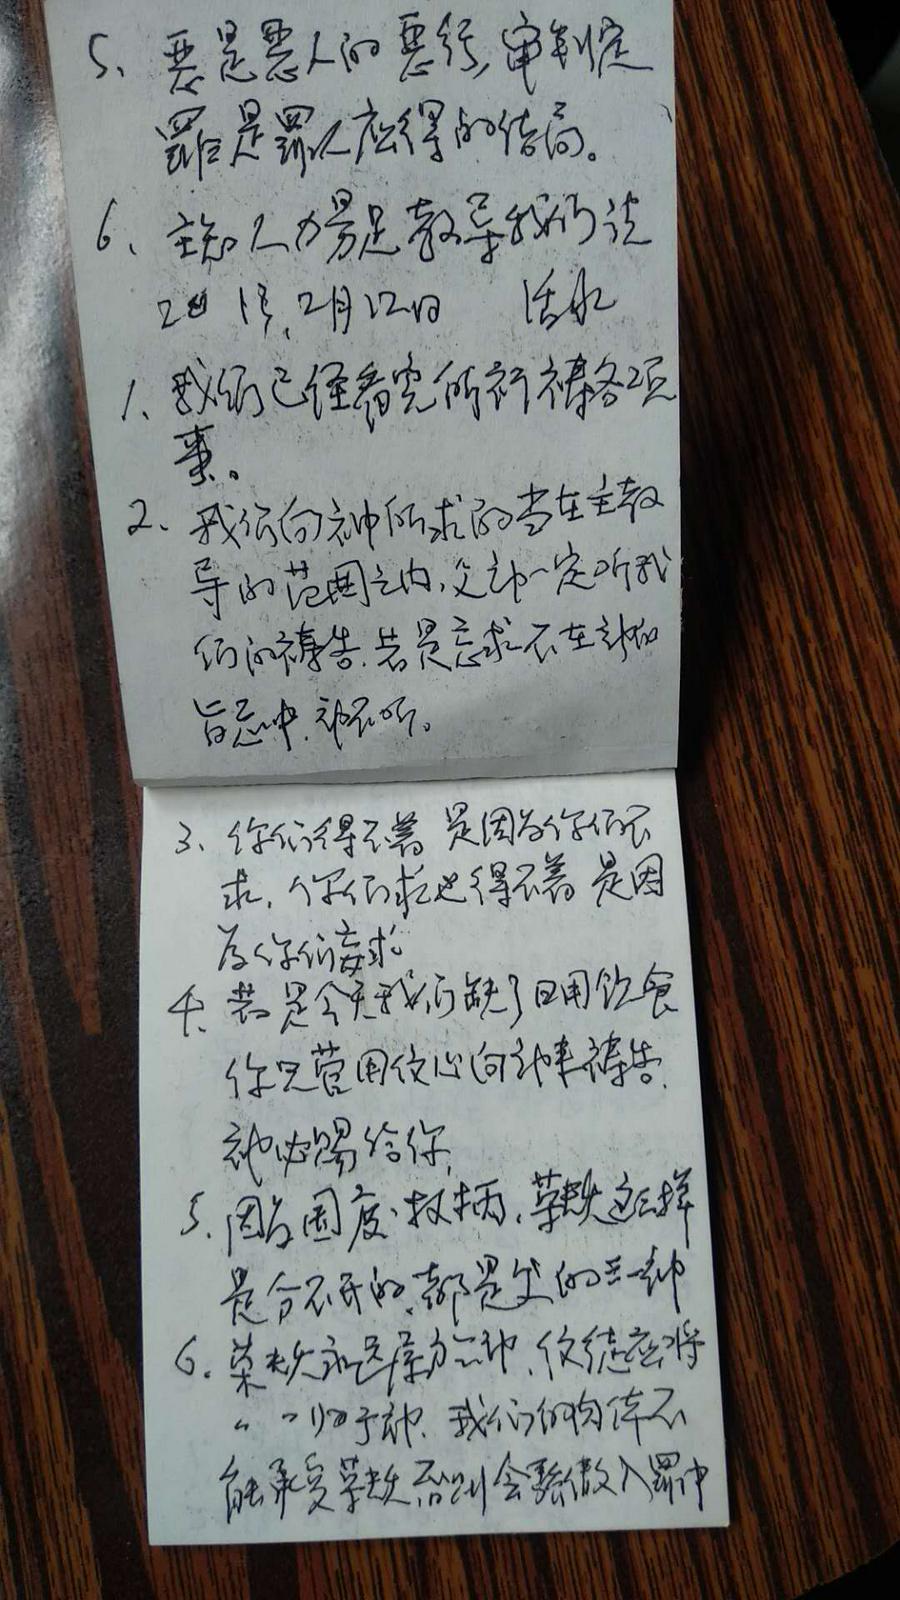 5、恶是恶人的恶行，审判定
罪是罪人应得的结局。
6、主 教导我们说
2月12日 活水
1、我们已经看完所祈祷各项
事。
2、我们向神所求的当在主教
导的范围之内，父神一定听我
们的祷告，若是妄求不在神的
旨意中，神不听。
3、你们得不着 是因为你们不
求，你们求也得不着 是因
为你们妄求
4、若是今天我们缺了日用饮食
你只管用信心向神来祷告，
神必赐给你，
5、因为国度、权柄、荣耀这三样
是分不开的，都是 的三一神
6、荣耀永远 神，信徒应将
〃 〃归于神，我们的肉体不
能承受荣耀 否则会骄傲入罪中